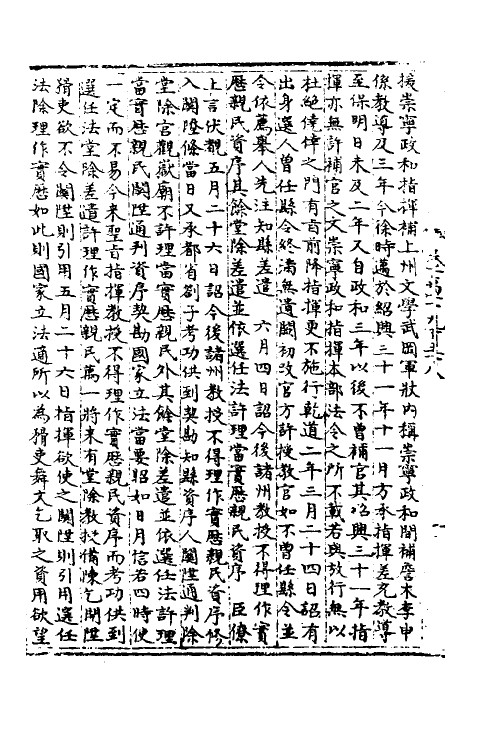 援崇寧政和指揮補上州文學武岡軍狀内稱崇寧政和間補詹木李申
係教導及三年今徐時邁於紹興三十一年十一月方承指揮差充教導
至保明日未及二年又自政和三年以後不曾補官其紹興三十一年指
揮亦無許補官之文崇寧政和指揮本部法令之所不載若與放行無以
杜絶僥倖之門有旨前降指揮更不施行乾道二年三月二十四日詔有
出身選人曾任縣令終滿無遺闕初改官方許授教官如不曾任縣令並
令依薦舉人先注知縣差遣 六月四日詔今後諸州教授不得理作實
歴親民資序其餘堂除差遣並依選任法許理當實歴親民資序 臣僚
上言伏覩五月二十六日詔今後諸州教授不得理作實歴親民資序修
入關陞條當日又承都省劄子考功供到契勘知縣資序人關陞通判除
堂除宫觀嶽廟不許理當實歴親民外其餘堂除差遣並依選任法許理
當實歴親民關陞通判資序契勘國家立法當要昭如日月信若四時使
一定而不易今来聖旨指揮教授不得理作實歴親民資序而考功供到
選任法堂除差遣許理作實歴親民萬一將来有堂除教授備陳乞關陞
猾吏欲不令關陞則引用五月二十六日指揮欲使之關陞則引用選任
法除理作實歴如此則國家立法適所以為猾吏舞文乞取之資用欲望